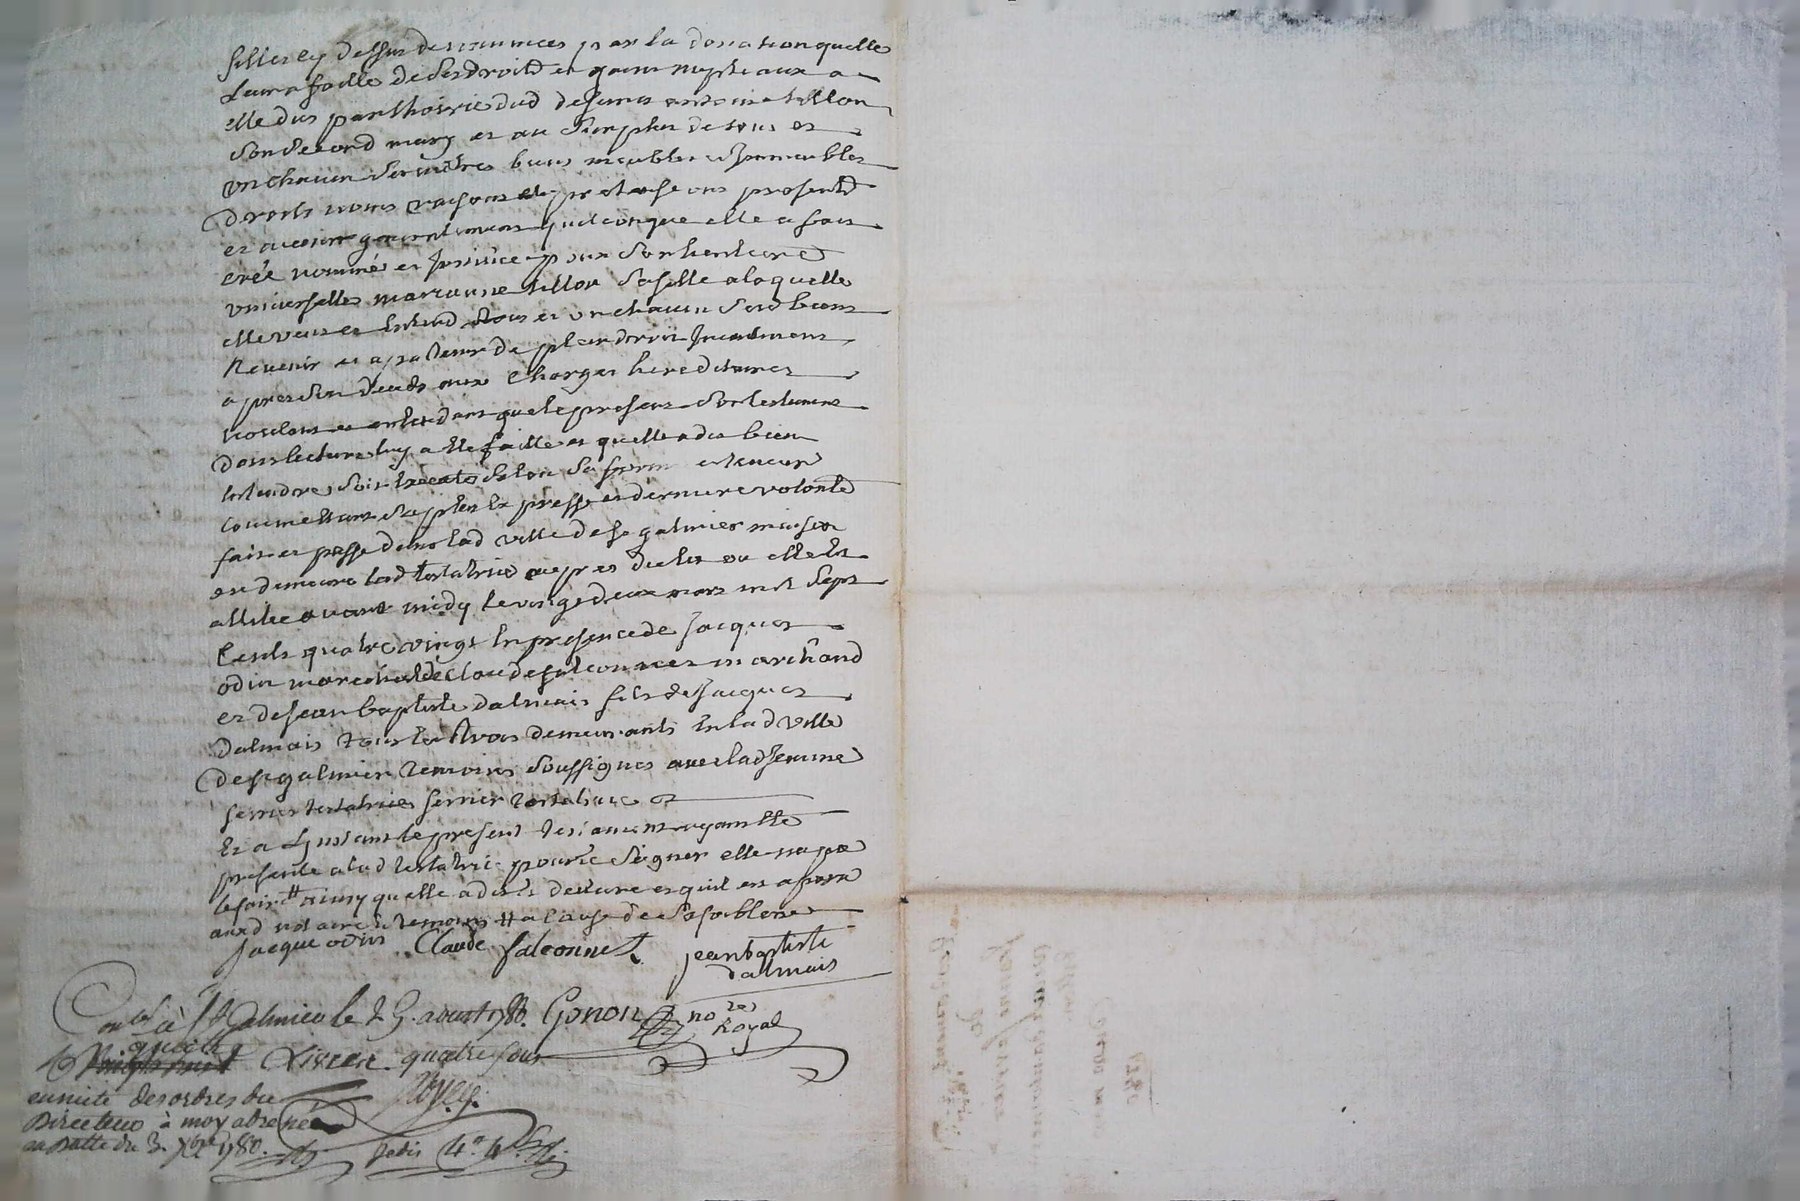 filles cy dessus denommees par la donation quelle
leur a faitte de ses droits et gains nuptiaux a
elle dus par lhoirie dud defunt antoine tillon
son second mary et au surplus de tous et
un chacun ses autres biens meubles et Immeubles
droits noms raisons et pretensions presents
et avenir generalement quelconque elle a fait
créé nommé et Institue pour son heritiere
universelle marianne tillon sa fille a laquelle
elle veut et Entend tous et un chacun sesd biens
Revenir et apartenir de plein droit Incontinent
apres son deceds aux Charges hereditaires
voulant et entendant que le present son testament
dont lecture luy a ete faitte et quelle a dit bien
Entendre soit Execute selon sa forme et teneur
comme etant sa plus Expresse et derniere volonte
fait et passe dans lad ville de st galmier maison
ou demeure lad testatrice aupres du lit ou elle Est
allitée avant midy le vingt deux mars mil sept
Cents quatre vingt En presence de Jacques
odin marechal de Claude falconnet marchand
et de Jean baptiste dalmais fils de Jacques
dalmais tous les trois demeurants En lad ville
de st galmier temoins soussignes avec lad Jeanne
ferrier testatrice ferrier testatrice et
Et a Linstant le present testament ayant ete
presente a lad testatrice pour le signer elle na pu
le faire # ainsy quelle a dit et declare et quil est aparu
aud notaire et temoins # a cause de sa foiblesse
Jacque odin Claude falconnet jean baptiste
dalmais
Conlé à St Galmier le 25. aoust 1780. Gonon no.re
Royal
R quatre Livres quatre sous
en suite des ordres du
Directeur à moy adressé
en datte du 3. 7bre 1780.
1780